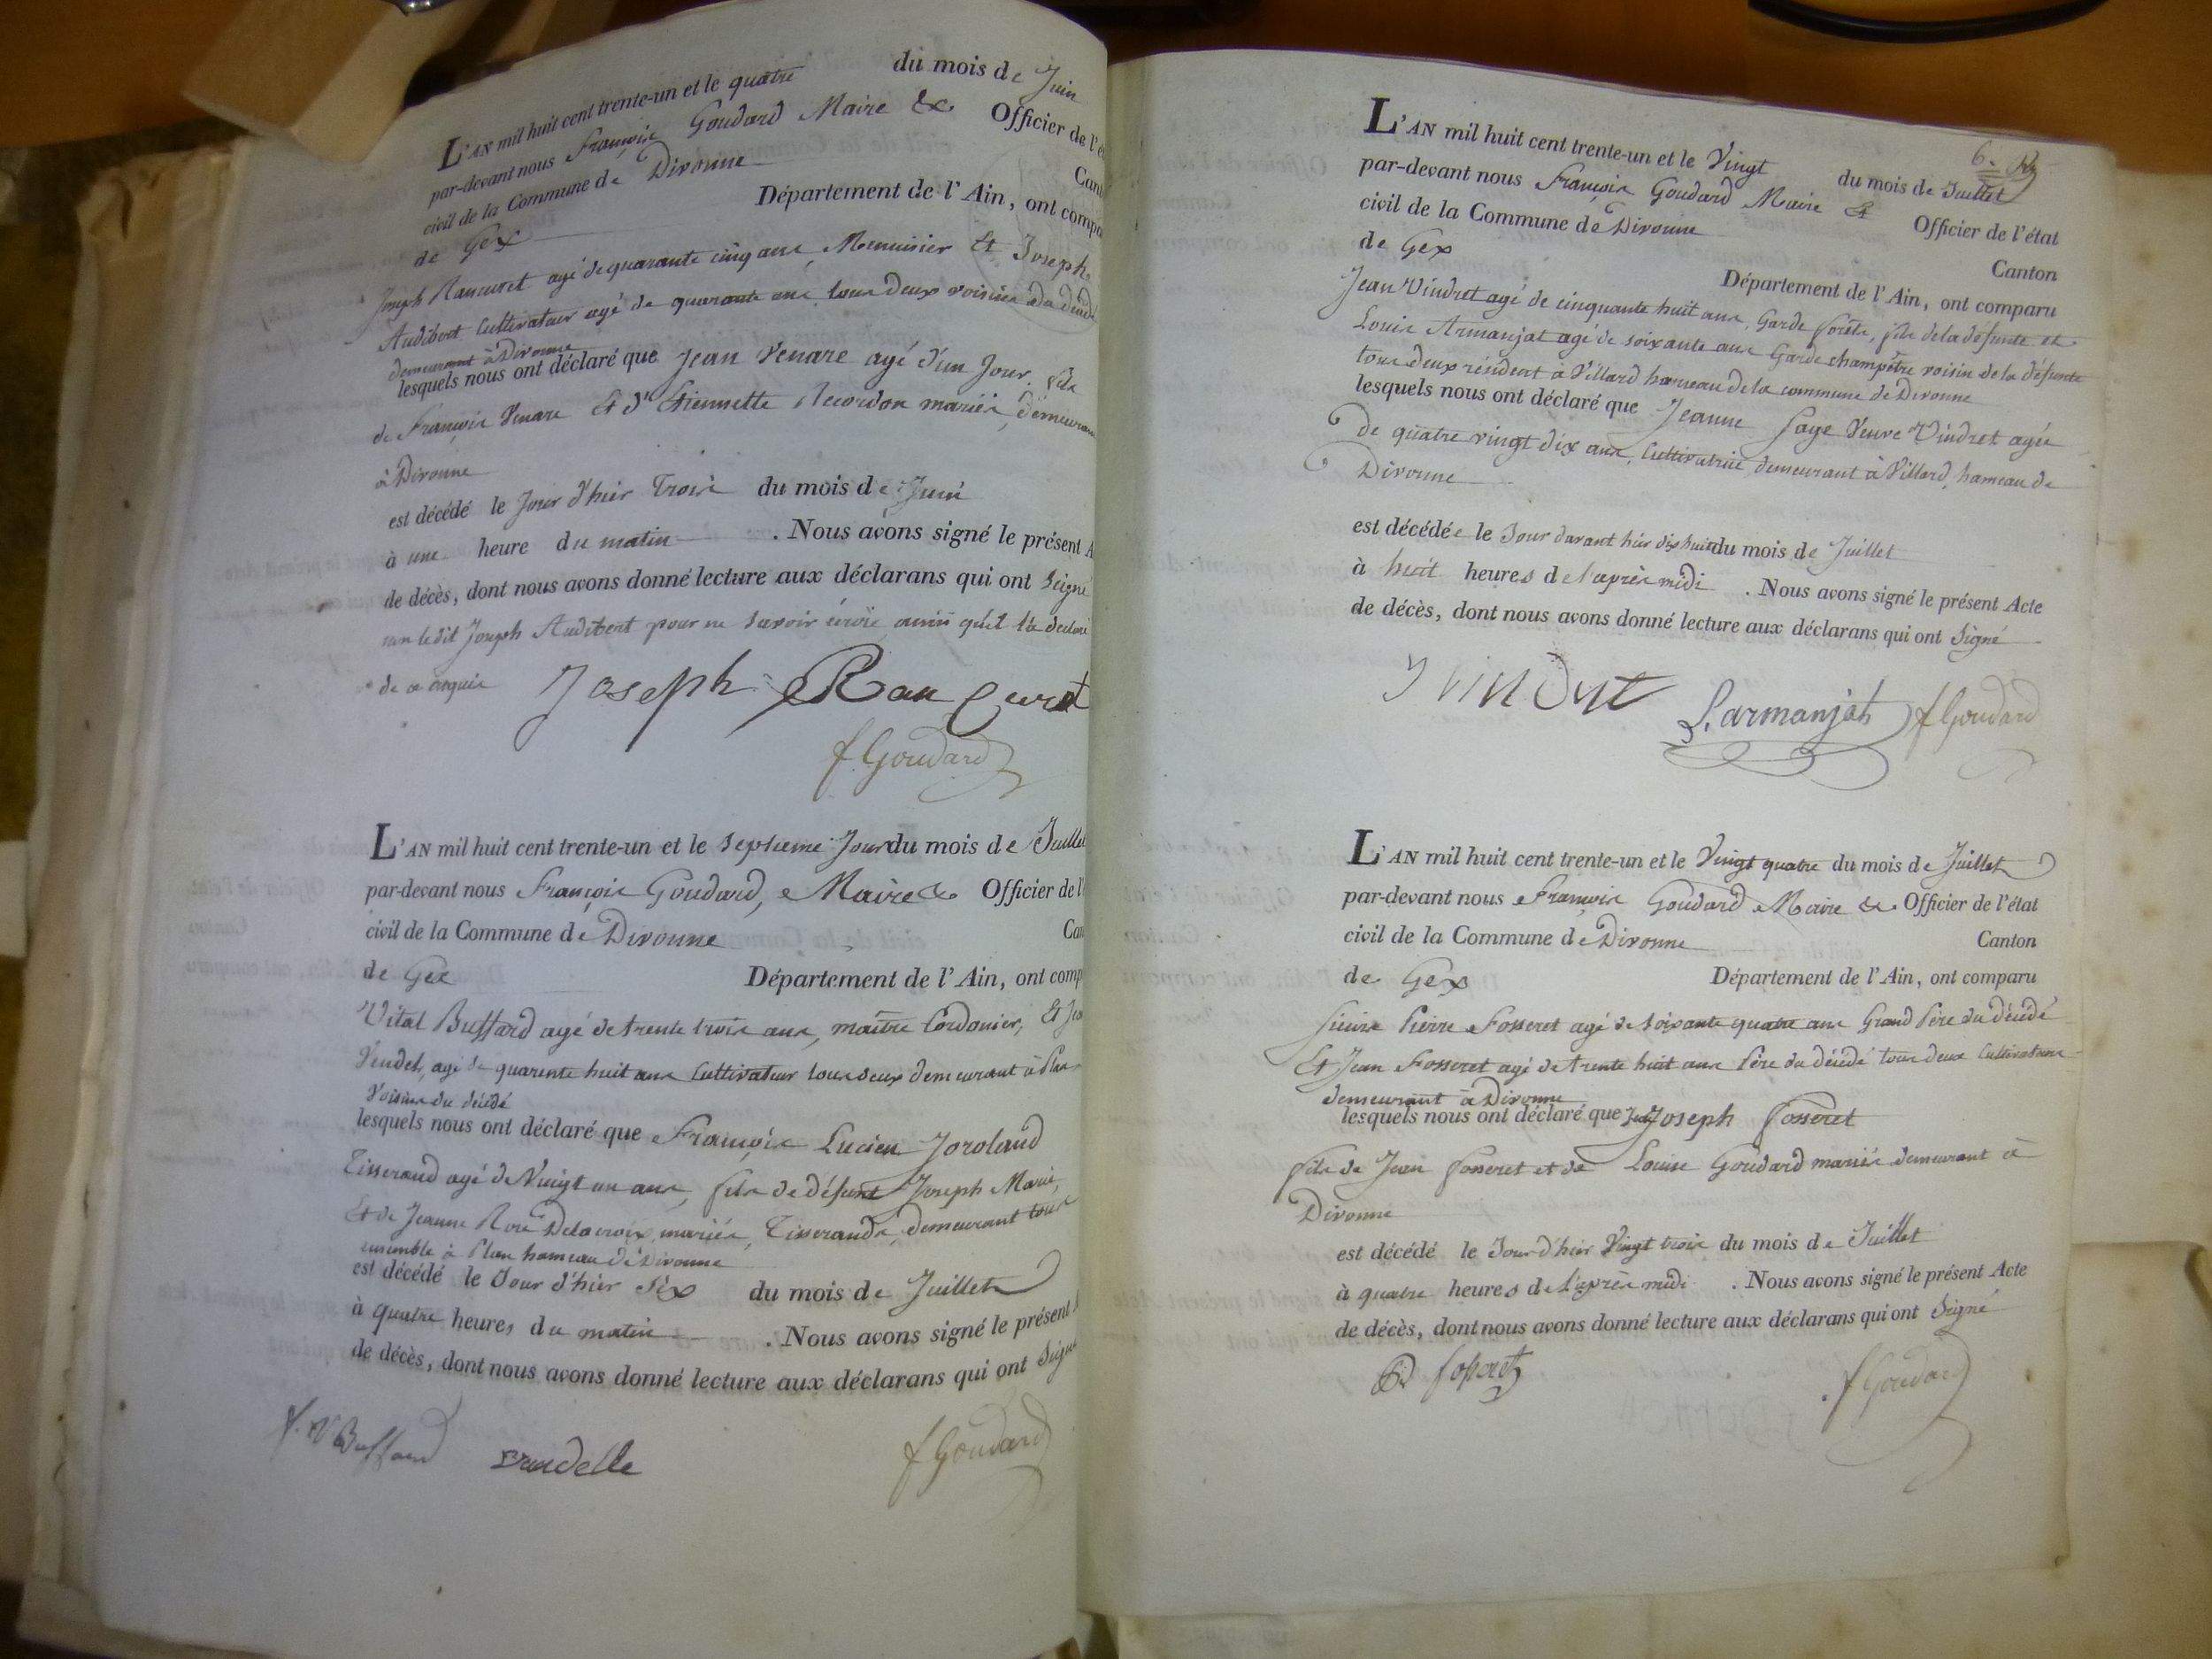 L'AN mil huit cent trente-un et le quatre du mois de Juin
par-devant nous François Goudard Maire & Officier de l'é
civil de la Commune de Divonne Cant
de Gex Département de l'Ain, ont compa
Joseph Rancuret agé de quarante cinq ans, Menuisier Et Joseph
Audibert Cultivateur agé de quarante ans tous deux voisins du
demeurant à Divonne
lesquels nous ont déclaré que Jean Venare agé d'un Jour fils
de François Venare Et d'Etiennette Recordon mariés, demeurant
à Divonne
est décédé le Jour d'hier Trois du mois de Juin
à une heure du matin . Nous avons signé le présent A
de décès, dont nous avons donné lecture aux déclarans qui ont Signé
non ledit Joseph Audibert pour ne savoir écrire ainsi qu'il l'a déclaré
de ce requis
Joseph Rancuret
f. Goudard
L'AN mil huit cent trente-un et le septieme Jour du mois de Juillet
par-devant nous François Goudard, Maire & Officier de l'
civil de la Commune de Divonne Can
de Gex Département de l'Ain, ont comp
Vital Buffard agé de trente trois ans, maître Cordonier, Et
Vendel, agé de quarente huit ans Cultivateur tous deux demeurant à Plan
Voisins du décédé
lesquels nous ont déclaré que François Lucien Jorolaud
Tisserand agé de Vingt un ans, fils de défunt Joseph Marie,
Et de Jeanne Rose Delacroix, mariés, Tisserands, demeurant tous
ensemble à Plan hameau de Divonne
est décédé le Jour d'hier Six du mois de Juillet
à quatre heures du matin . Nous avons signé le présent
de décès, dont nous avons donné lecture aux déclarans qui ont Signé
Buffard
vandelle
f Goudard
6.
L'AN mil huit cent trente-un et le Vingt du mois de Juillet
par-devant nous François Goudard Maire & Officier de l'état
civil de la Commune de Divonne Canton
de Gex Département de l'Ain, ont comparu
Jean Vindret agé de cinquante huit ans, Garde forêts, fils de la défunte et
Louis Armanjat agé de soixante ans Garde champêtre voisin de la défunte
tous deux résident à Villard hameau de la commune de Divonne
lesquels nous ont déclaré que Jeanne Veuve Vindret agée
de quatre vingt dix ans, Cultivatrice demeurant à Villard, hameau de
Divonne
est décédée le Jour davant hier dix huit du mois de Juillet
à huit heures de l'après midi . Nous avons signé le présent Acte
de décès, dont nous avons donné lecture aux déclarans qui ont Signé
L. armanjat
f Goudard
L'AN mil huit cent trente-un et le Vingt quatre du mois de Juillet
par-devant nous François Goudard Maire & Officier de l'état
civil de la Commune de Divonne Canton
de Gex Département de l'Ain, ont comparu
Pierre Fosseret agé de soixante quatre ans Grand Père du décédé
Et Jean Fosseret agé de trente huit ans Père du décédé tous deux Cultivateurs
demeurant à Divonne
lesquels nous ont déclaré que Joseph Fosseret
fils de Jean Fosseret et de Louise Goudard mariés demeurant à
Divonne
est décédé le Jour d'hier Vingt trois du mois de Juillet
à quatre heures de l'après midi . Nous avons signé le présent Acte
de décès, dont nous avons donné lecture aux déclarans qui ont Signé
fosseret
f Goudard